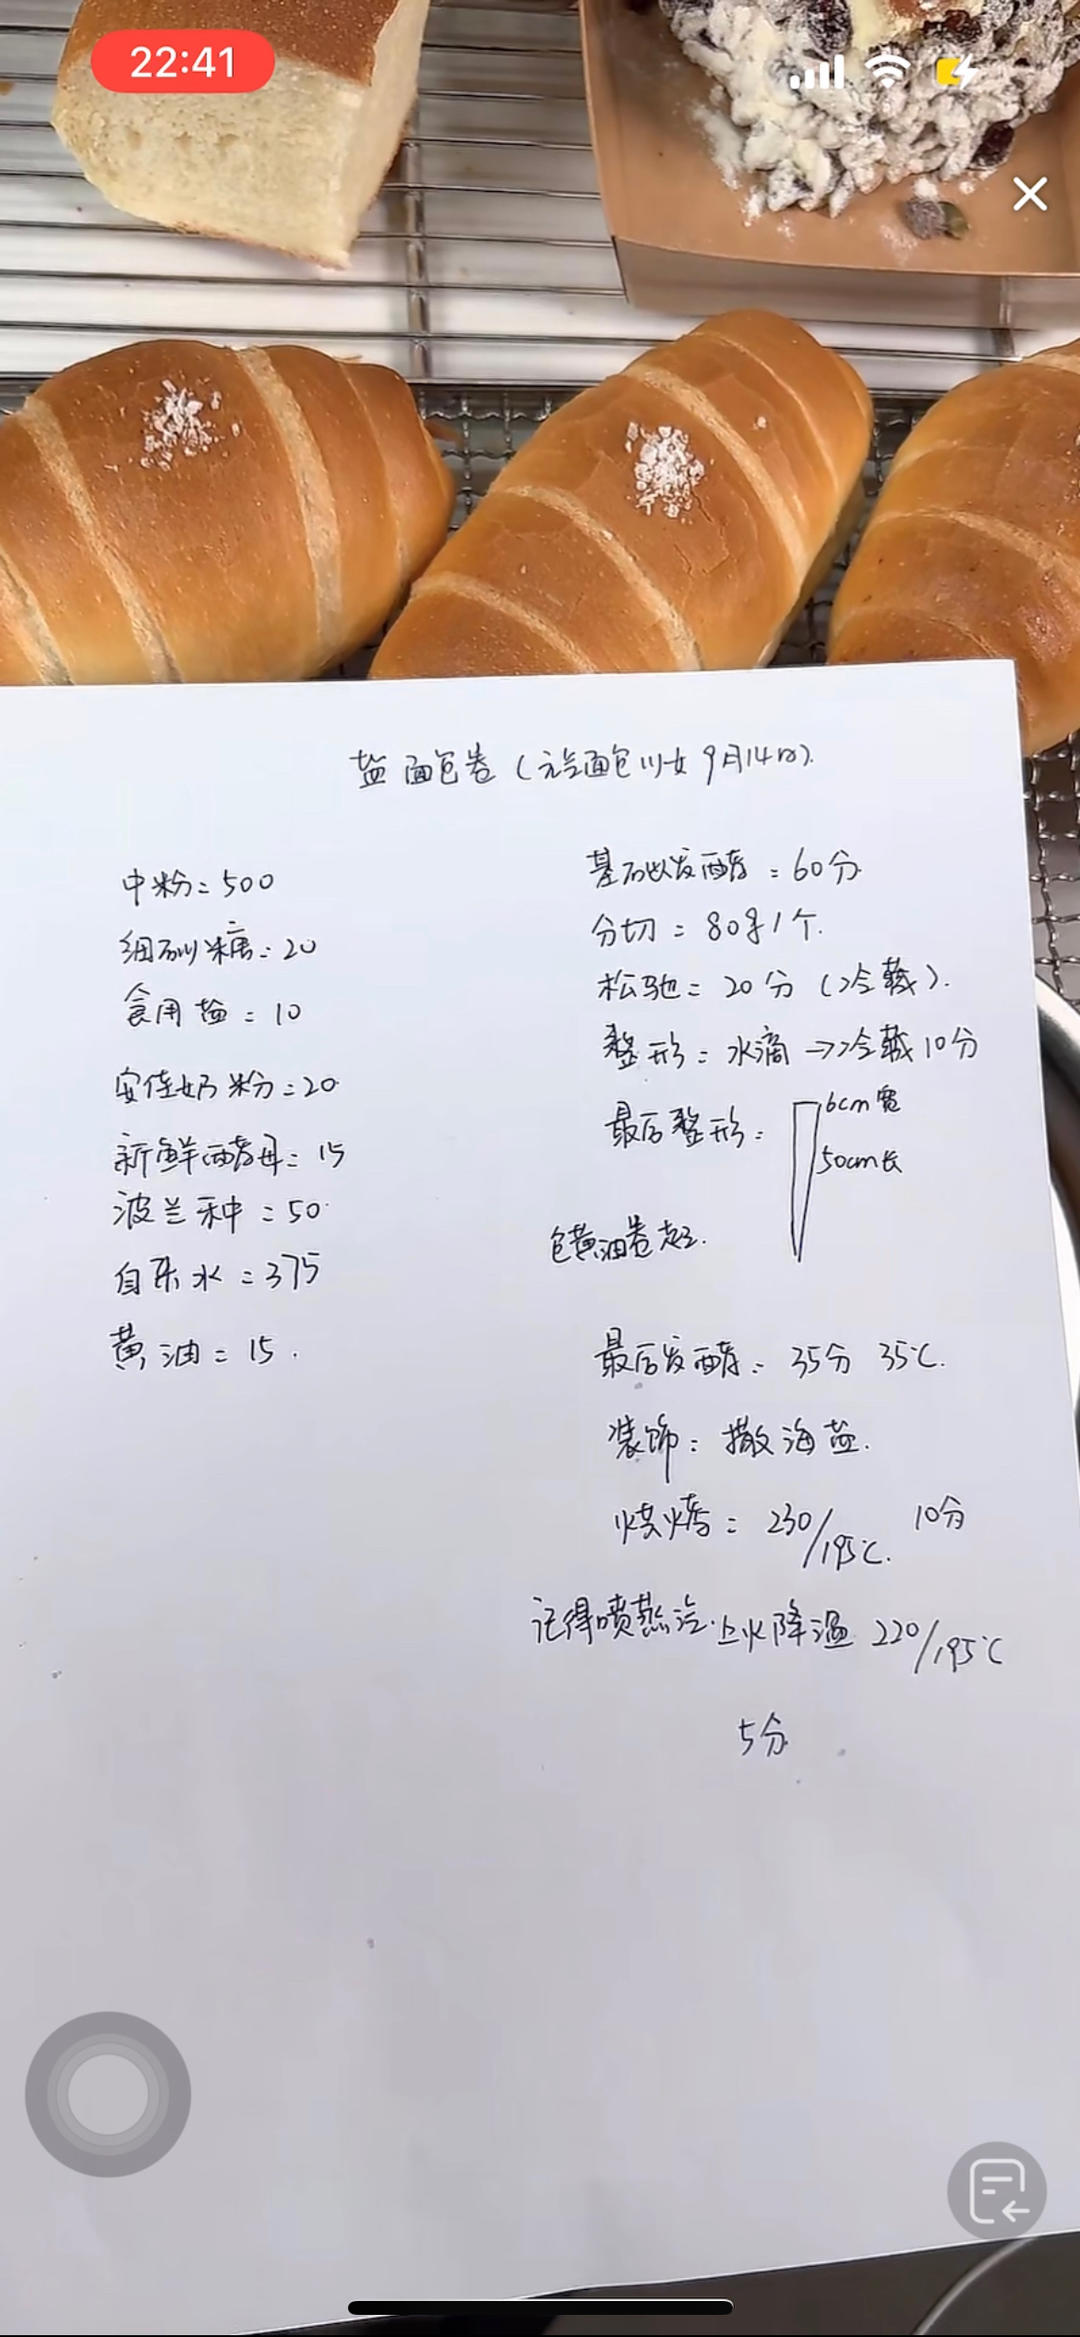 22:41
盐面包卷（元气面包少女 9月14日）.
中粉=500
细砂糖=20
食用盐=10
安佳奶粉=20
新鲜酵母=15
波兰种=50
自来水=375
黄油=15.
基础发酵=60分
分切=80g1个.
松驰=20分（冷藏）.
整形=水滴→冷藏10分
最后整形=
6cm宽
50cm长
包黄油卷起.
最后发酵=35分 35℃.
装饰：撒海盐.
烘烤=230/195℃. 10分
记得喷蒸汽.上火降温 220/195℃
5分